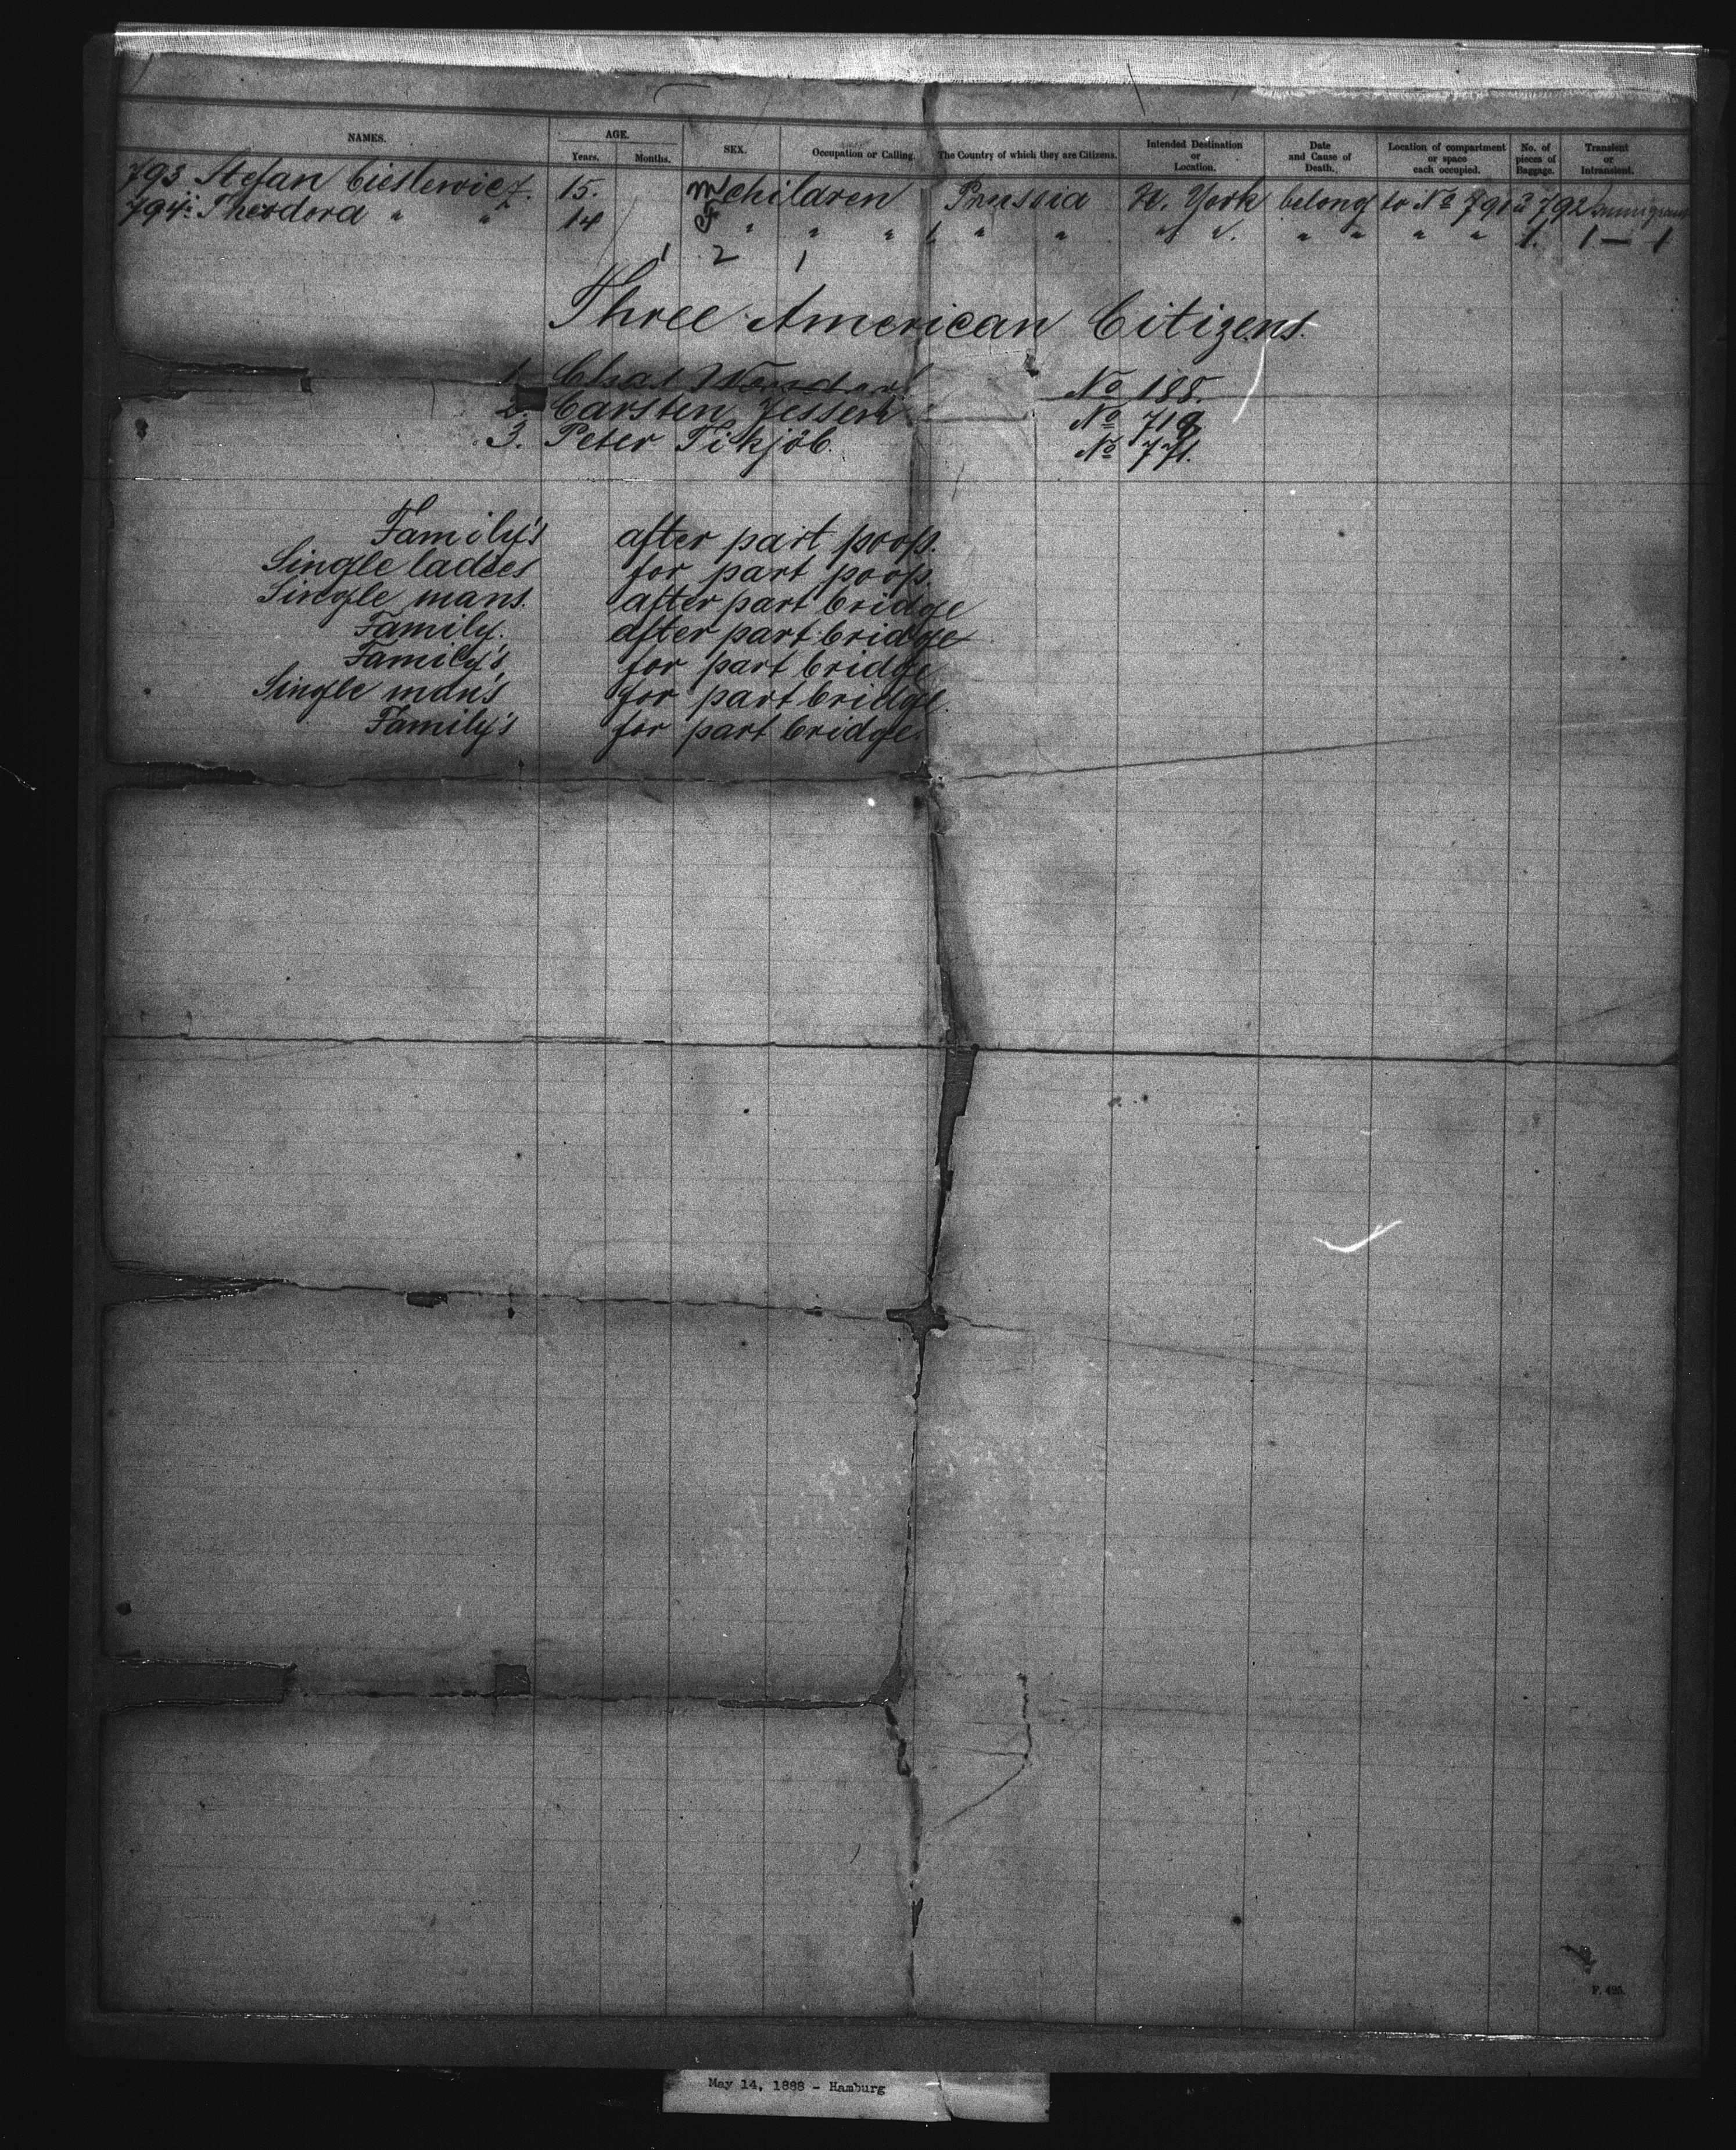 NAMES. AGE. Years. Months. SEX. Occupation or Calling. The Country of which they are Citizens. Intended Destination or Location. Date and Cause of Death. Location of compartment or space each occupied. No. of pieces of Baggage. Transient or Intransient.
793 Stefan Cieslewicz. 15. m children Prussia N. York belong to No 791 & 792
794. Theodora " " 14 " " " " " " " " " " 1. 1 — 1
1 2 1
Three American Citizens.
1. Chas No 188.
2. Carsten Jessen No 719
3. Peter Tikjöb. No 771.
Family's after part poop.
Single ladies for part poop.
Single mans. after part bridge
Family. after part bridge
Family's for part bridge
Single man's for part bridge.
Family's for part bridge.
F. 425.
May 14, 1888 - Hamburg